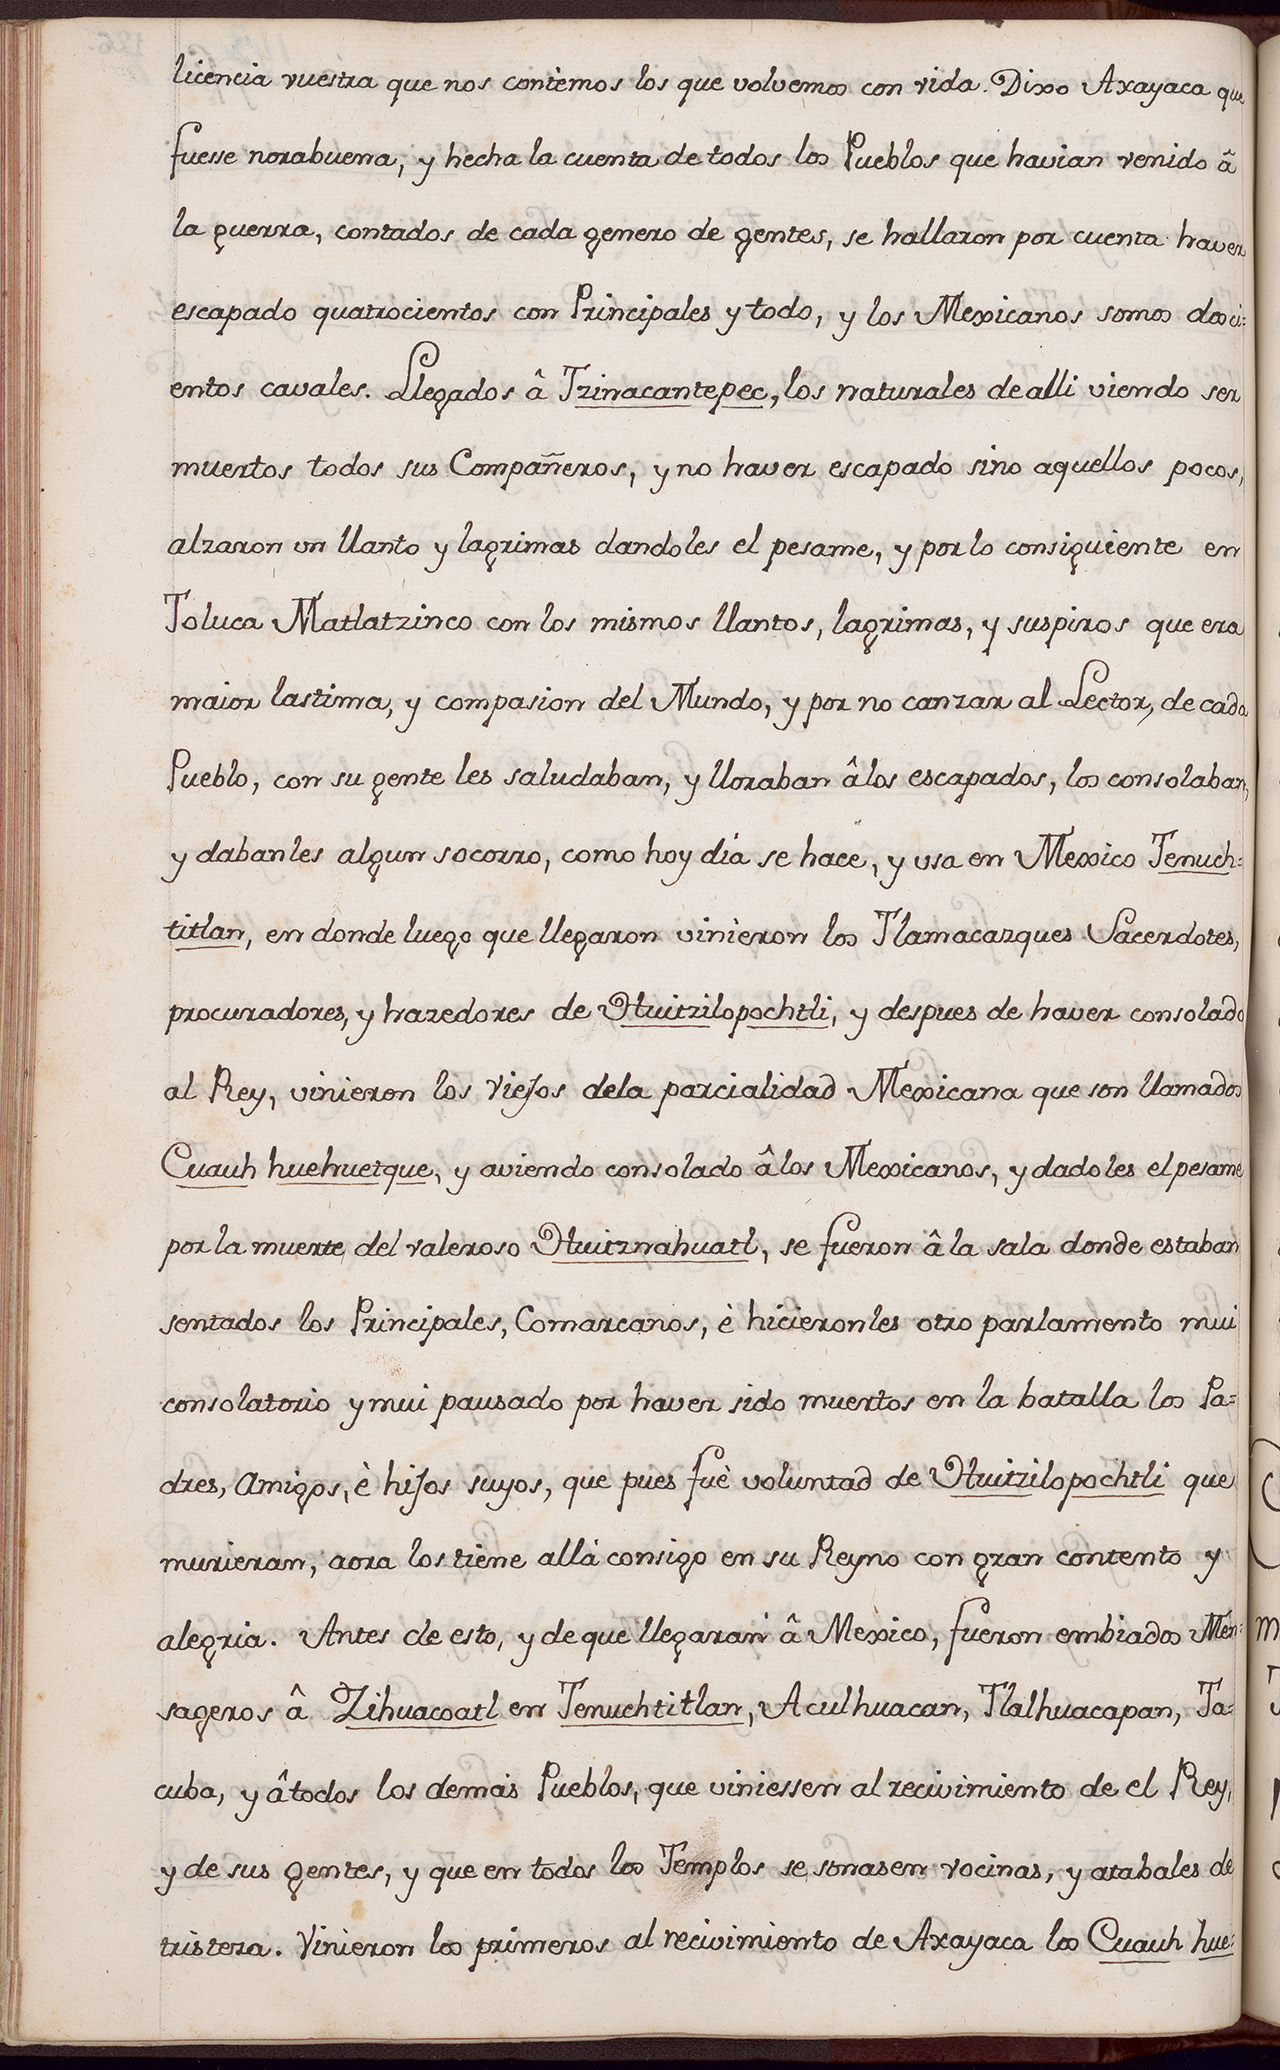 licencia vuestra que nos contemos los que volvemos con vida. Dixo Axayaca que
fuesse norabuena, y hecha la cuenta de todos los Pueblos que havian venido â
la guerra, contados de cada genero de gentes, se hallaron por cuenta haver
escapado quatrocientos con Principales y todo, y los Mexicanos somos dosci=
entos cavales. Llegados â Tzinacantepec, los naturales de alli viendo ser
muertos todos sus Compañeros, y no haver escapado sino aquellos pocos,
alzaron un llanto y lagrimas dandoles el pesame, y por lo consiguiente en
Toluca Matlatzinco con los mismos llantos, lagrimas, y suspiros que era
maior lastima, y compasion del Mundo, y por no canzar al Lector, de cada
Pueblo, con su gente les saludaban, y lloraban â los escapados, los consolaban,
y dabanles algun socorro, como hoy día se hace, y usa en Mexico Tenuch=
titlan, en donde luego que llegaron vinieron los Tlamacazques Sacerdotes,
procuradores, y hazedores de Huitzilopochtli, y despues de haver consolado
al Rey, vinieron los viejos dela parcialidad Mexicana que son llamados
Cuauh huehuetque, y aviendo consolado â los Mexicanos, y dadoles el pesame
por la muerte del valeroso Huitznahuatl, se fueron â la sala donde estaban
sentados los Principales, Comarcanos, è hicieronles otro parlamento mui
consolatorio y mui pausado por haver sido muertos en la batalla los Pa=
dres, Amigos, è hijos suyos, que pues fuè voluntad de Huitzilopochtli que
murieran, aora los tiene allá consigo en su Reyno con gran contento y
alegria. Antes de esto, y de que llegarán â Mexico, fueron embiados Men=
sageros â Zihuacoatl en Tenuchtitlan, Aculhuacan, Tlalhuacapan, Ta=
cuba, y â todos los demás Pueblos, que viniessen al recivimiento de el Rey,
y de sus gentes, y que en todos los Templos se sonasen vocinas, y atabales de
tristeza. Vinieron los primeros al recivimiento de Axayaca los Cuauh hue=